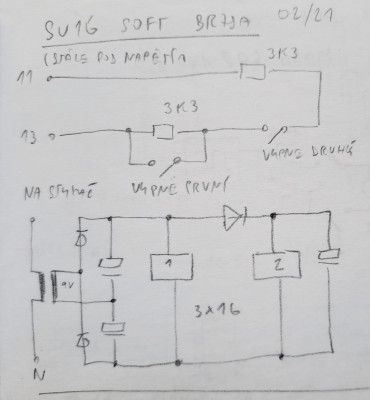 SV16 SOFT BRZDA 02/21
(STÁLE POD NAPĚTÍM
3K3
11
3K3
13
VYPNE DRUHÉ
VYPNE PRVNÍ
NA STYKAČ
1
2
9V
3x16
N